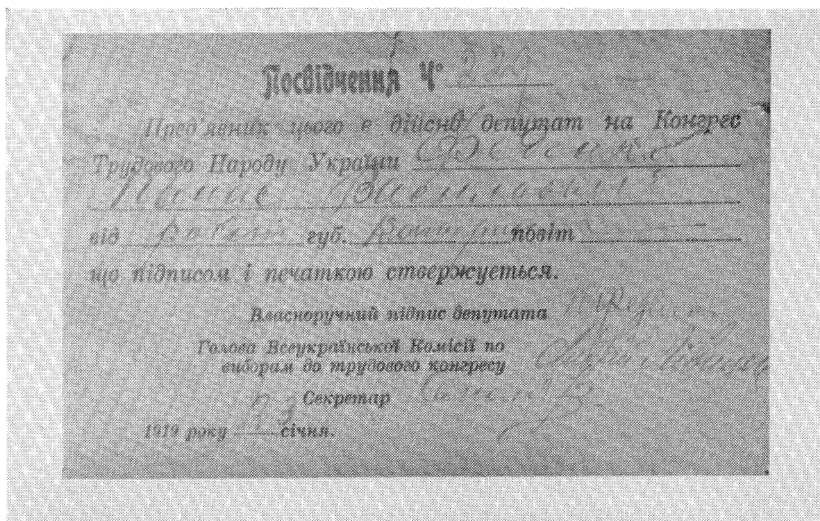 Посвідчення Ч° 220
Пред'явник цього є дійсно депутат на Конгрес
Трудового Народу України Феденко
Панас Васильович
від губ. повіт
що підписом і печаткою стверджується.
Власноручний підпис депутата
Голова Всеукраїнської Комісії по
виборам до трудового конгресу
Секретар
1919 року 23 січня.